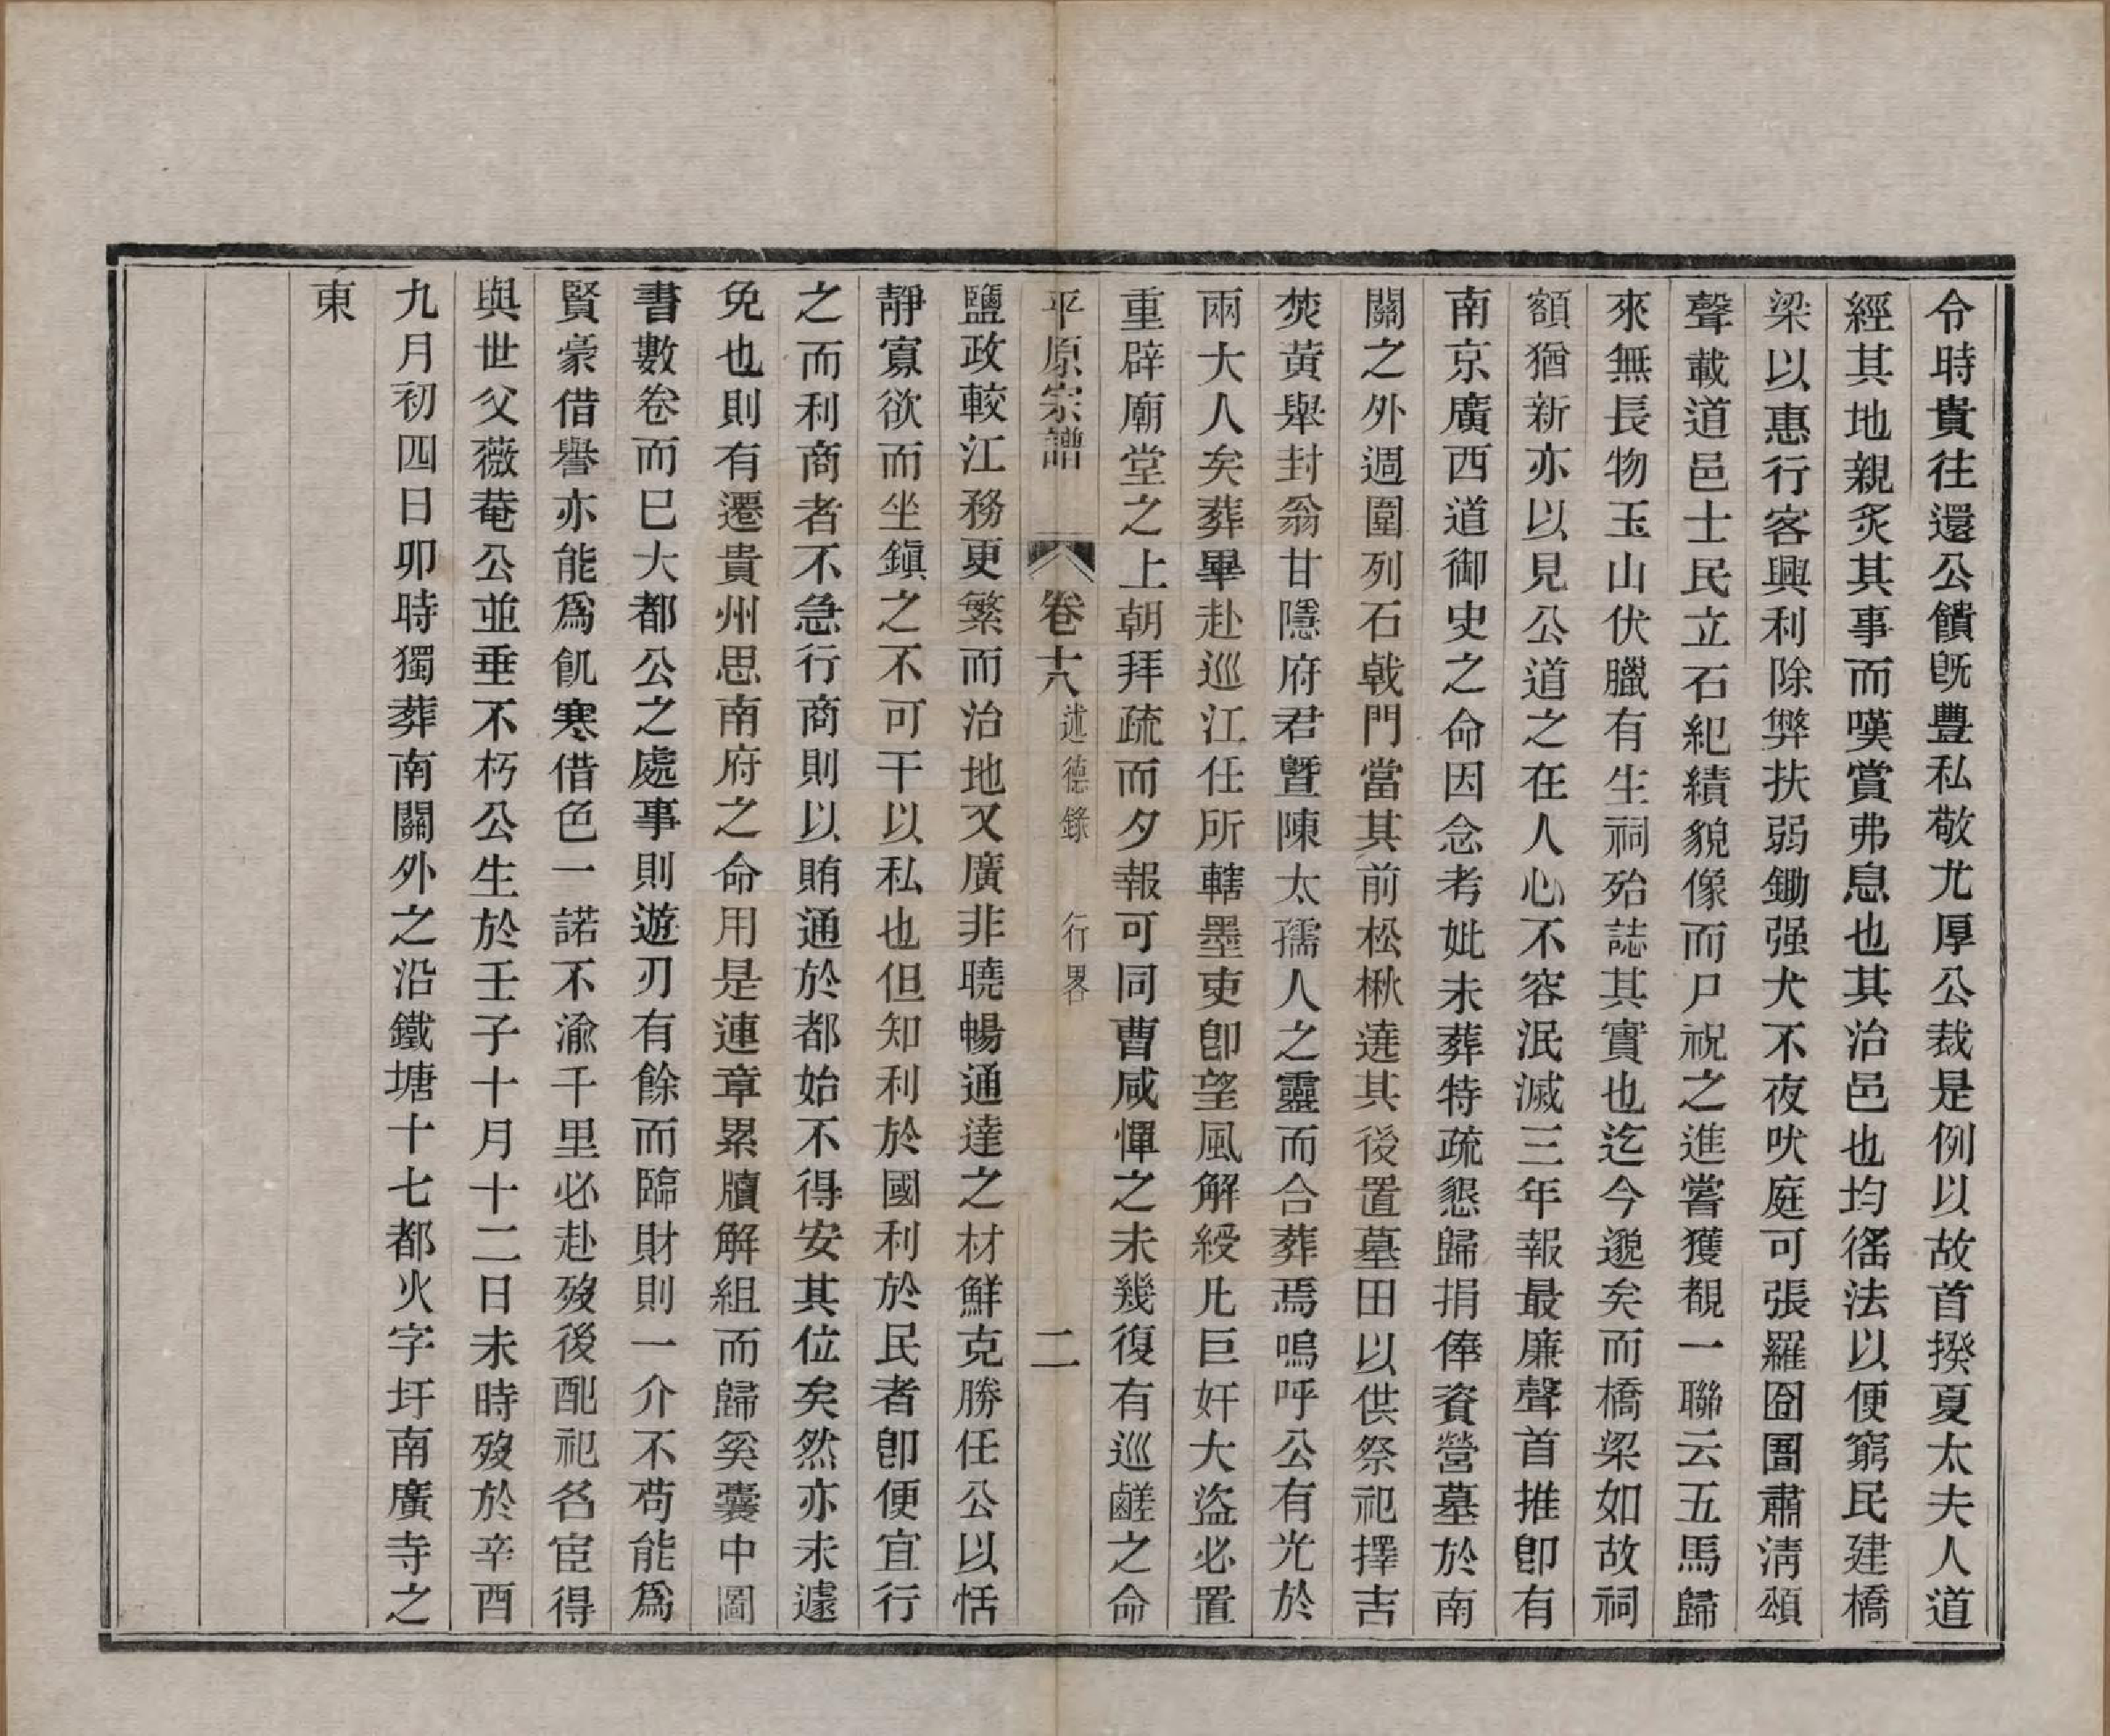 令時貴往還公饋旣豐私敬尤厚公裁是例以故首揆夏太夫人道
經其地親炙其事而嘆賞弗息也其治邑也均徭法以便窮民建橋
梁以惠行客興利除弊扶弱鋤强犬不夜吠庭可張羅囹圄肅淸頌
聲載道邑士民立石紀績貌像而尸祝之進嘗獲覩一聯云五馬歸
來無長物玉山伏臘有生祠殆誌其實也迄今邈矣而橋梁如故祠
額猶新亦以見公道之在人心不容泯滅三年報最廉聲首推卽有
南京廣西道御史之命因念考妣未葬特疏懇歸捐俸資營墓於南
關之外週圍列石戟門當其前松楸遶其後置墓田以供祭祀擇吉
焚黃舉封翁甘隱府君曁陳太孺人之靈而合葬焉嗚呼公有光於
兩大人矣葬畢赴巡江任所轄墨吏卽望風解綬凡巨奸大盜必置
重辟廟堂之上朝拜疏而夕報可同曹咸憚之未幾復有巡鹺之命
平原宗譜 卷十八 述德錄 行畧 二
鹽政較江務更繁而治地又廣非曉暢通達之材鮮克勝任公以恬
靜寡欲而坐鎭之不可干以私也但知利於國利於民者卽便宜行
之而利商者不急行商則以賄通於都始不得安其位矣然亦未遽
免也則有遷貴州思南府之命用是連章累牘解組而歸奚囊中圖
書數卷而巳大都公之處事則遊刃有餘而臨財則一介不苟能爲
賢豪借譽亦能爲飢寒借色一諾不渝千里必赴歿後配祀名宦得
與世父薇菴公並垂不朽公生於壬子十月十二日未時歿於辛酉
九月初四日卯時獨葬南關外之沿鐵塘十七都火字圩南廣寺之
東